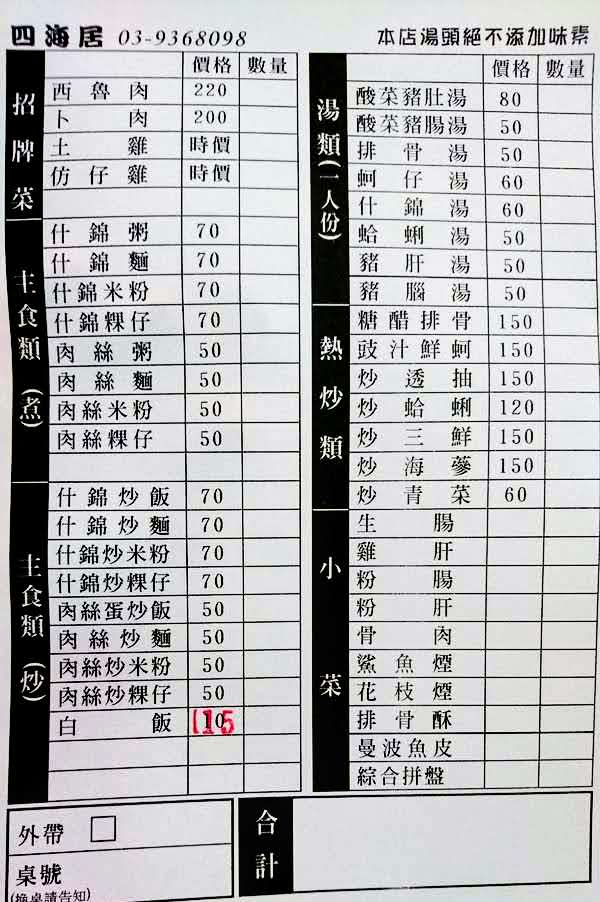 四海居 03-9368098 本店湯頭絕不添加味素
招牌菜
價格 數量
西魯肉 220
卜肉 200
土雞 時價
仿仔雞 時價
主食類(煮)
什錦粥 70
什錦麵 70
什錦米粉 70
什錦粿仔 70
肉絲粥 50
肉絲麵 50
肉絲米粉 50
肉絲粿仔 50
主食類(炒)
什錦炒飯 70
什錦炒麵 70
什錦炒米粉 70
什錦炒粿仔 70
肉絲蛋炒飯 50
肉絲炒麵 50
肉絲炒米粉 50
肉絲炒粿仔 50
白飯 15
湯類(一人份)
價格 數量
酸菜豬肚湯 80
酸菜豬腸湯 50
排骨湯 50
蚵仔湯 60
什錦湯 60
蛤蜊湯 50
豬肝湯 50
豬腦湯 50
熱炒類
糖醋排骨 150
豉汁鮮蚵 150
炒透抽 150
炒蛤蜊 120
炒三鮮 150
炒海蔘 150
炒青菜 60
小菜
生腸
雞肝
粉腸
粉肝
骨肉
鯊魚煙
花枝煙
排骨酥
曼波魚皮
綜合拼盤
外帶 □
桌號
(換桌請告知)
合計